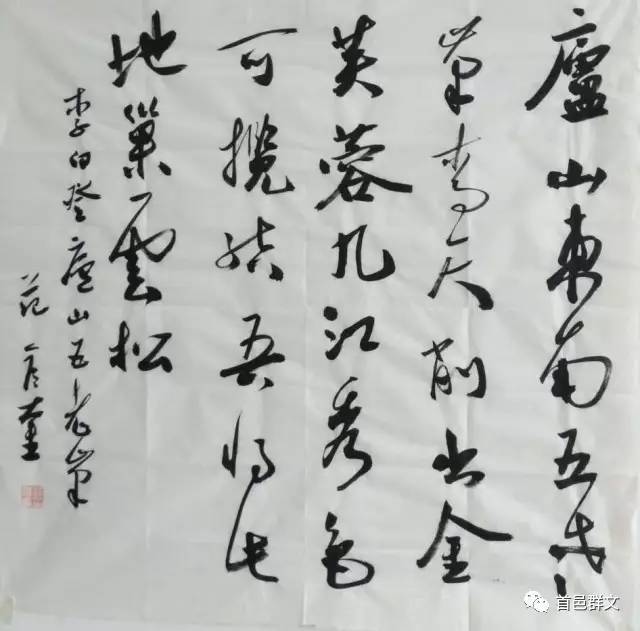 廬山東南五老
峯青天削出金
芙蓉九江秀色
可攬結吾將此
地巢雲松
李白登廬山五老峯
范
首邑群文